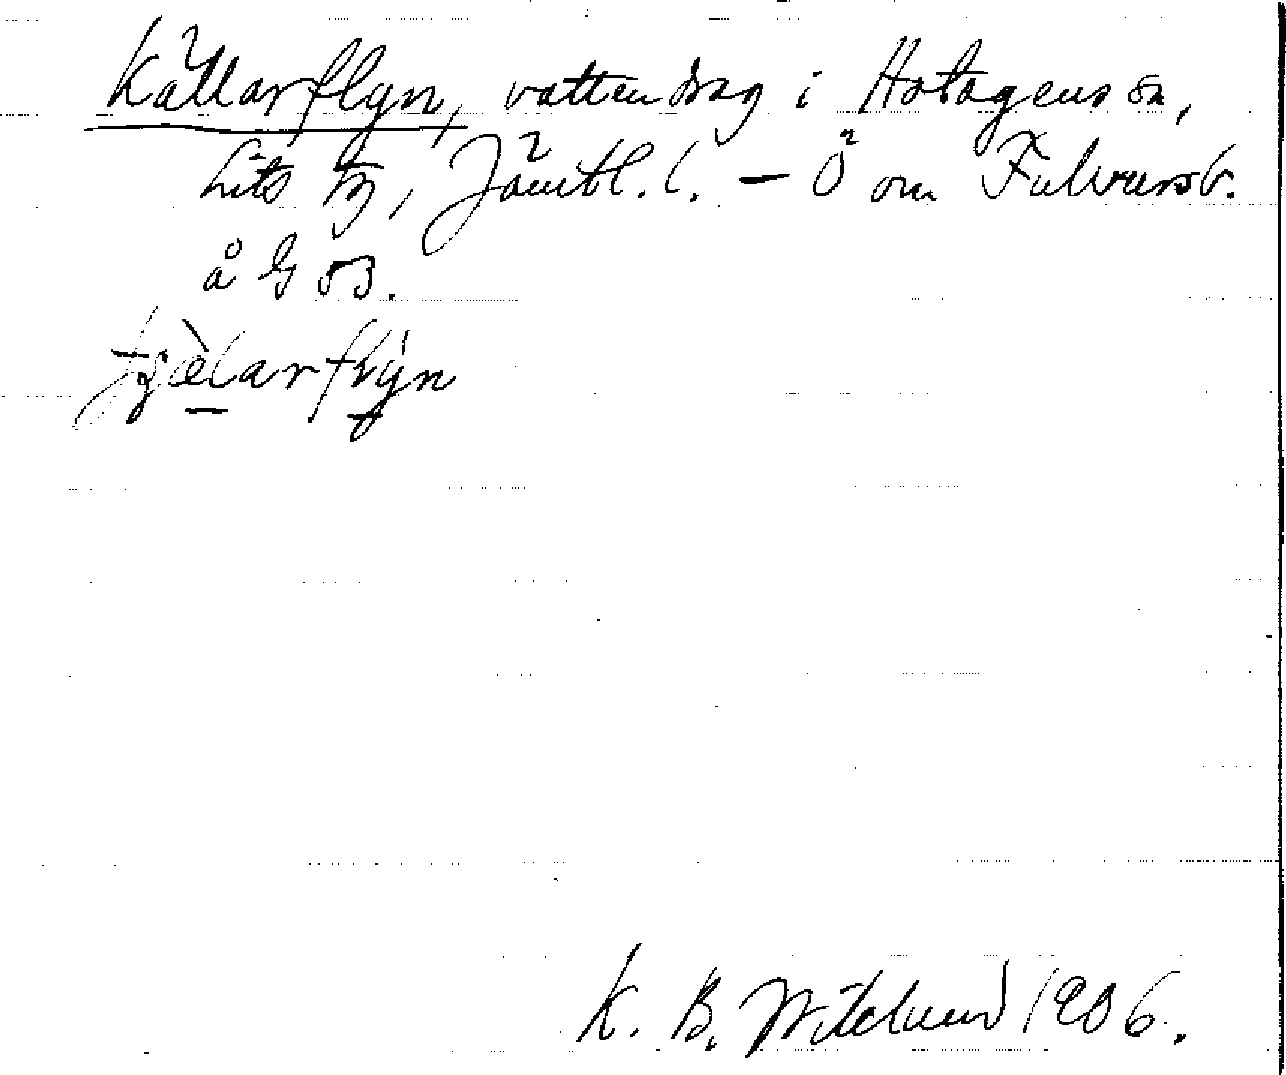 Källarflyn, vattendrag i Hotagens sn,
Lits tg, Jämtl. l. – Ö om Fulvurst.
å G 53.
K. B. Wiklund 1906.